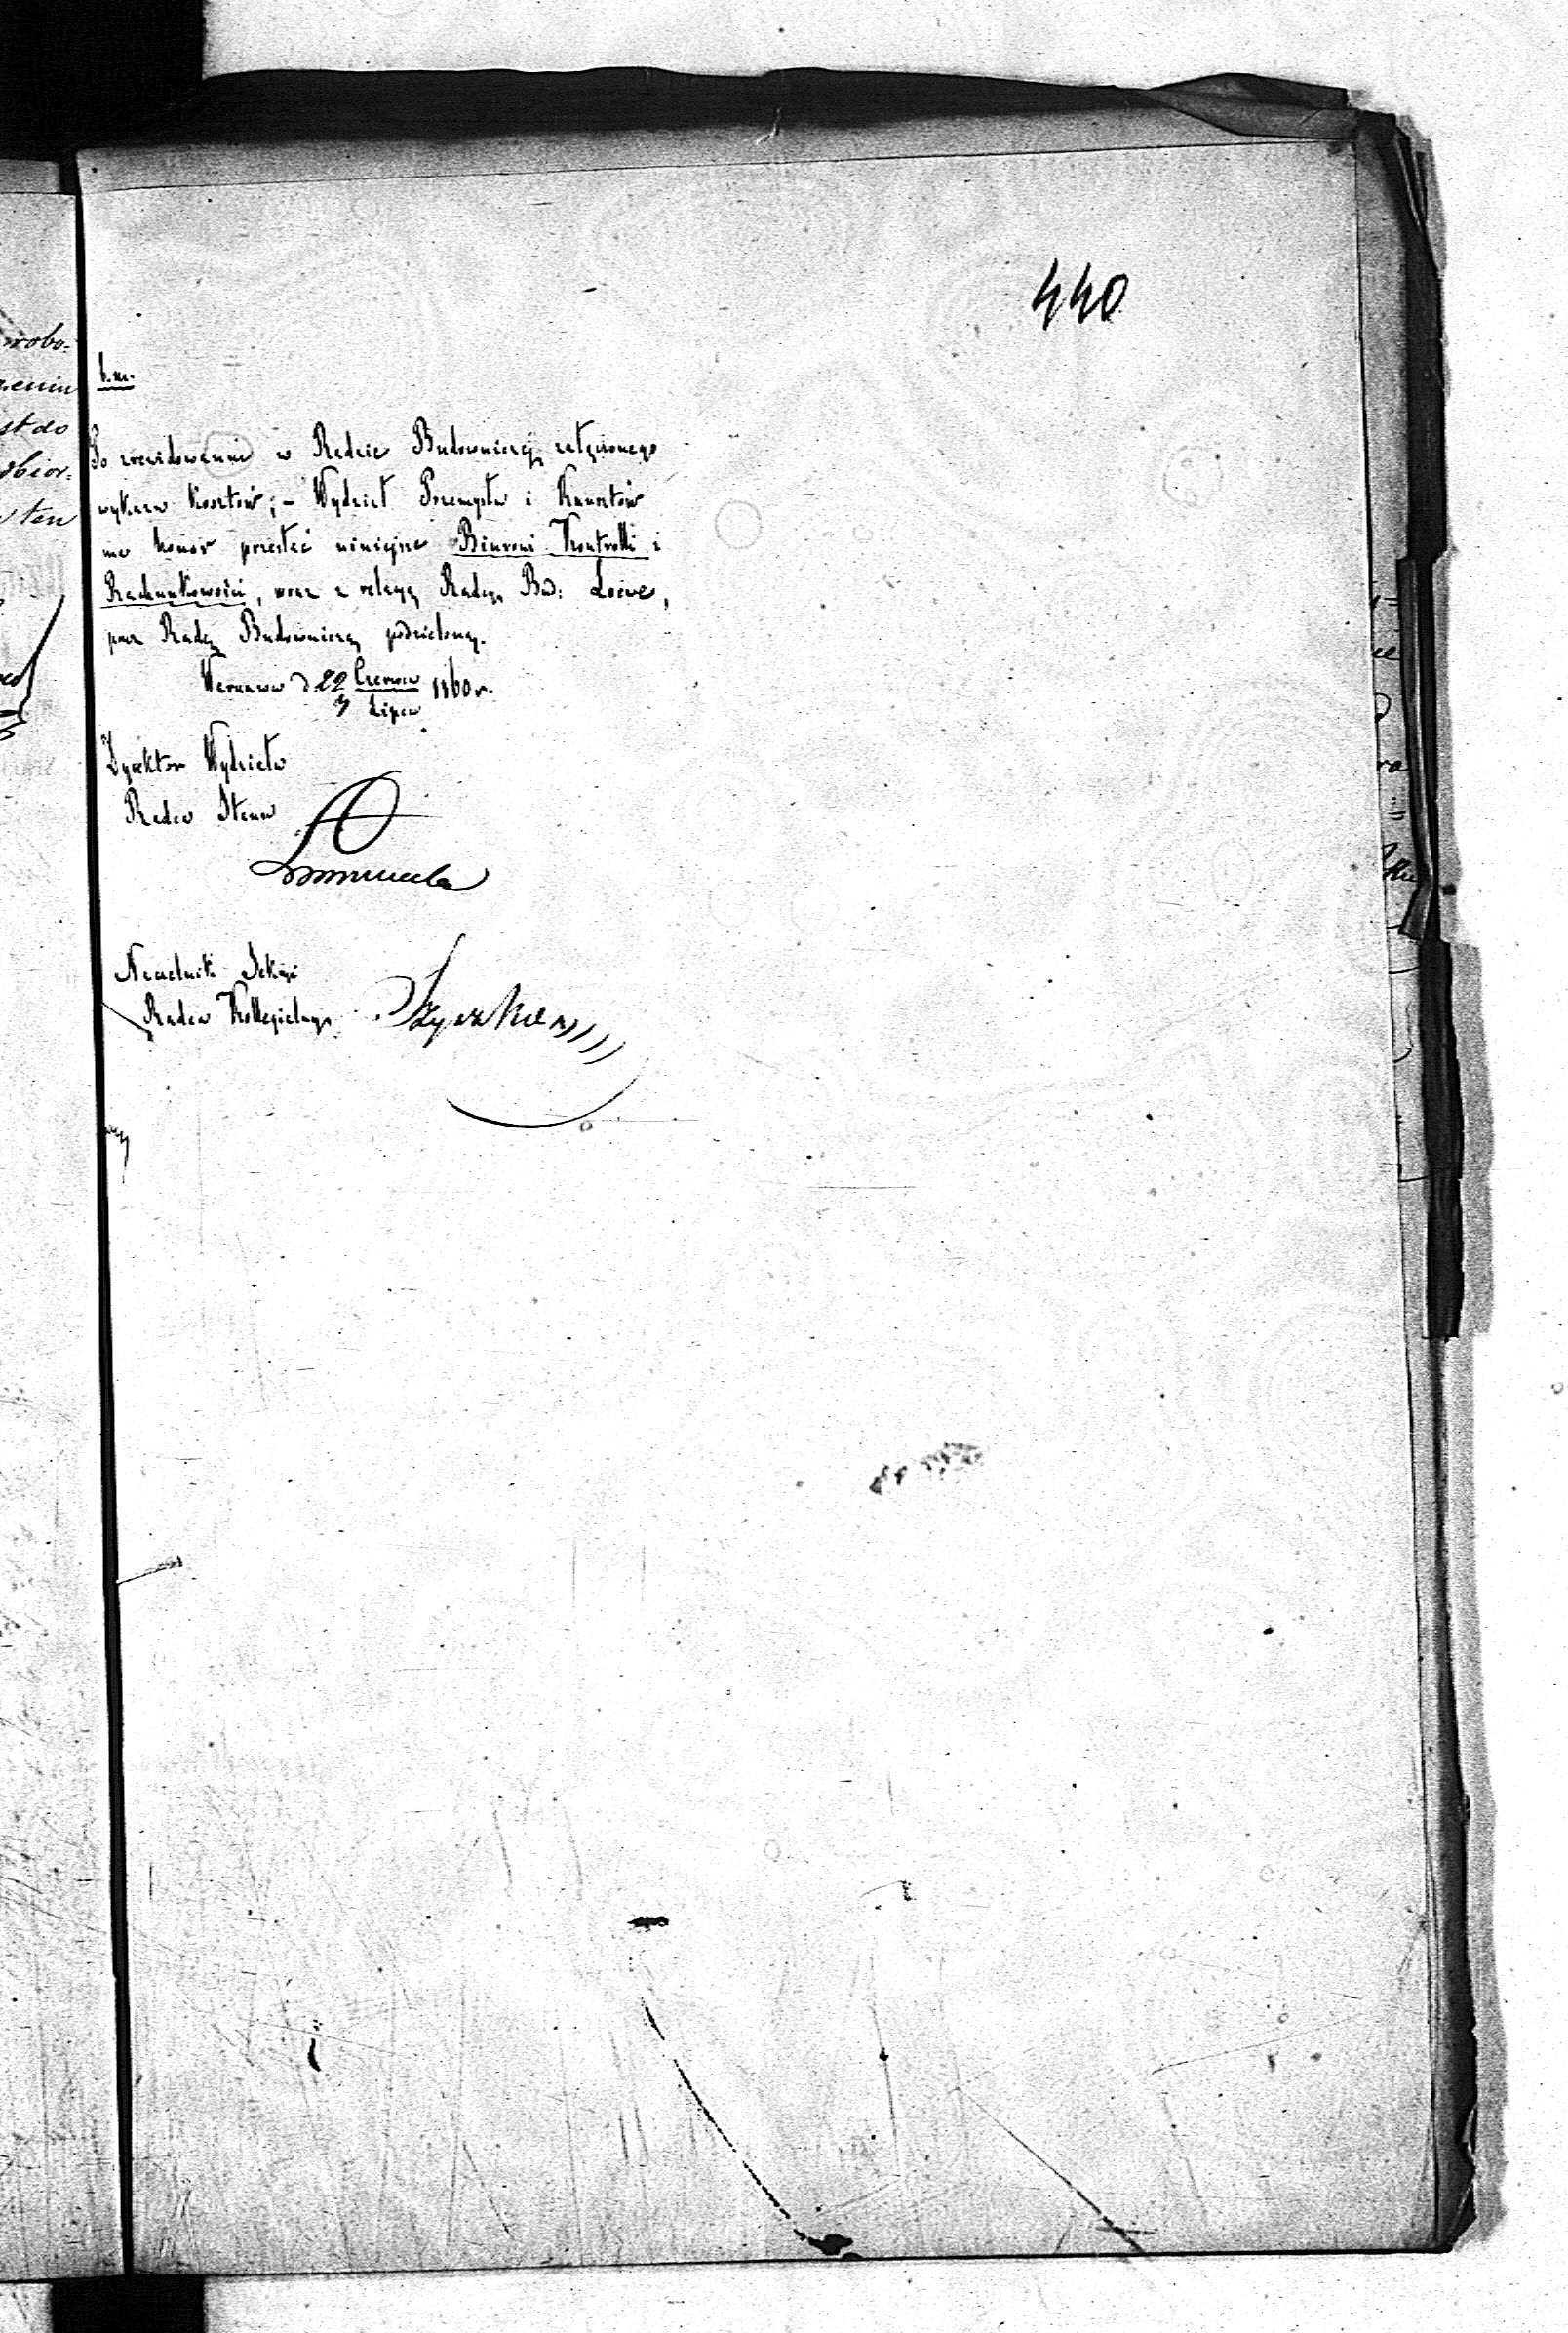 440
b.m.
Po zrewidowaniu w Radzie Budowniczej załączonego
wykazu kosztów; – Wydział Przemysłu i Kunsztów
ma honor przesłać niniejsze Biurowi Kontrolli i
Rachunkowości, wraz z relacyą Radcy Bud: Loewe,
przez Radę Budowniczą podzieloną.
Warszawa d. 22 Czerwca 1860 r.
Lipca
Dyrektor Wydziału
Radca Stanu
Naczelnik Sekcyi
Radca Kollegialny
wobo-
zeniu
st do
obior-
ten